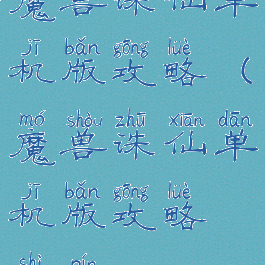 魔兽诛仙单
jī bǎn gōng lüè
机版攻略（
mó shòu zhū xiān dān
魔兽诛仙单
jī bǎn gōng lüè
机版攻略
shì pín